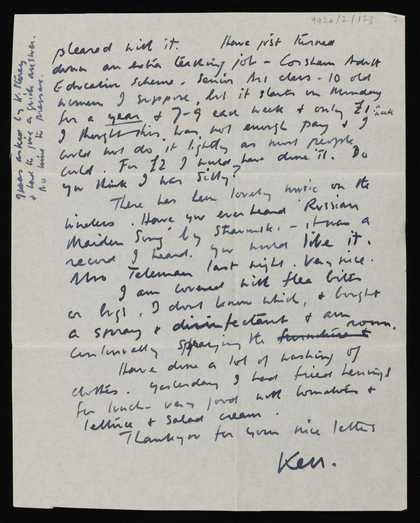 9420/2/123
pleased with it. Have just turned
down an extra teaching job - Corsham Adult
Education Scheme. Senior Art class - 10 old
women I suppose, but it starts on Monday
for a year & 7-9 each week & only £1 week
I thought this was not enough pay & I
could not do it lightly as most people
could. For £2 I would have done it. Do
you think I was silly?
There has been lovely music on the
wireless. Have you ever heard 'Russian
Maiden Song' by Stravinsk. - it was a
record I heard. You would like it.
Also Teleman last night. Very nice.
I am covered with flea bites
or bugs, I dont know which, & bought
a spray & disinfectant & am
continually spraying the furniture room.
Have done a lot of washing of
clothes. Yesterday I had fried herrings
for lunch - very good with tomatoes &
lettuce & salad cream.
Thankyou for your nice letters
Ken.
I was asked by
& had to give a quick answer.
No time to